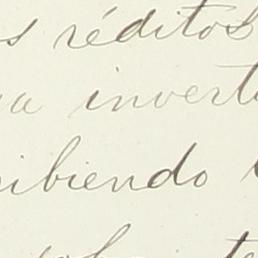 s réditos
a invert
ibiendo